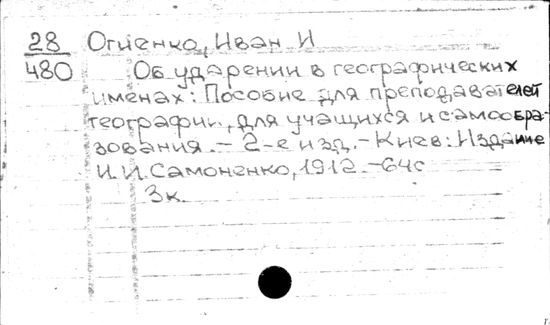 28 Огиенко, Иван И
480 Об ударении в географических
именах: Пособие для преподавателей
географии, для учащихся и самообра-
зования. - 2-е изд. - Киев: Издание
И.И. Самоненко, 1912. - 64с
3к.